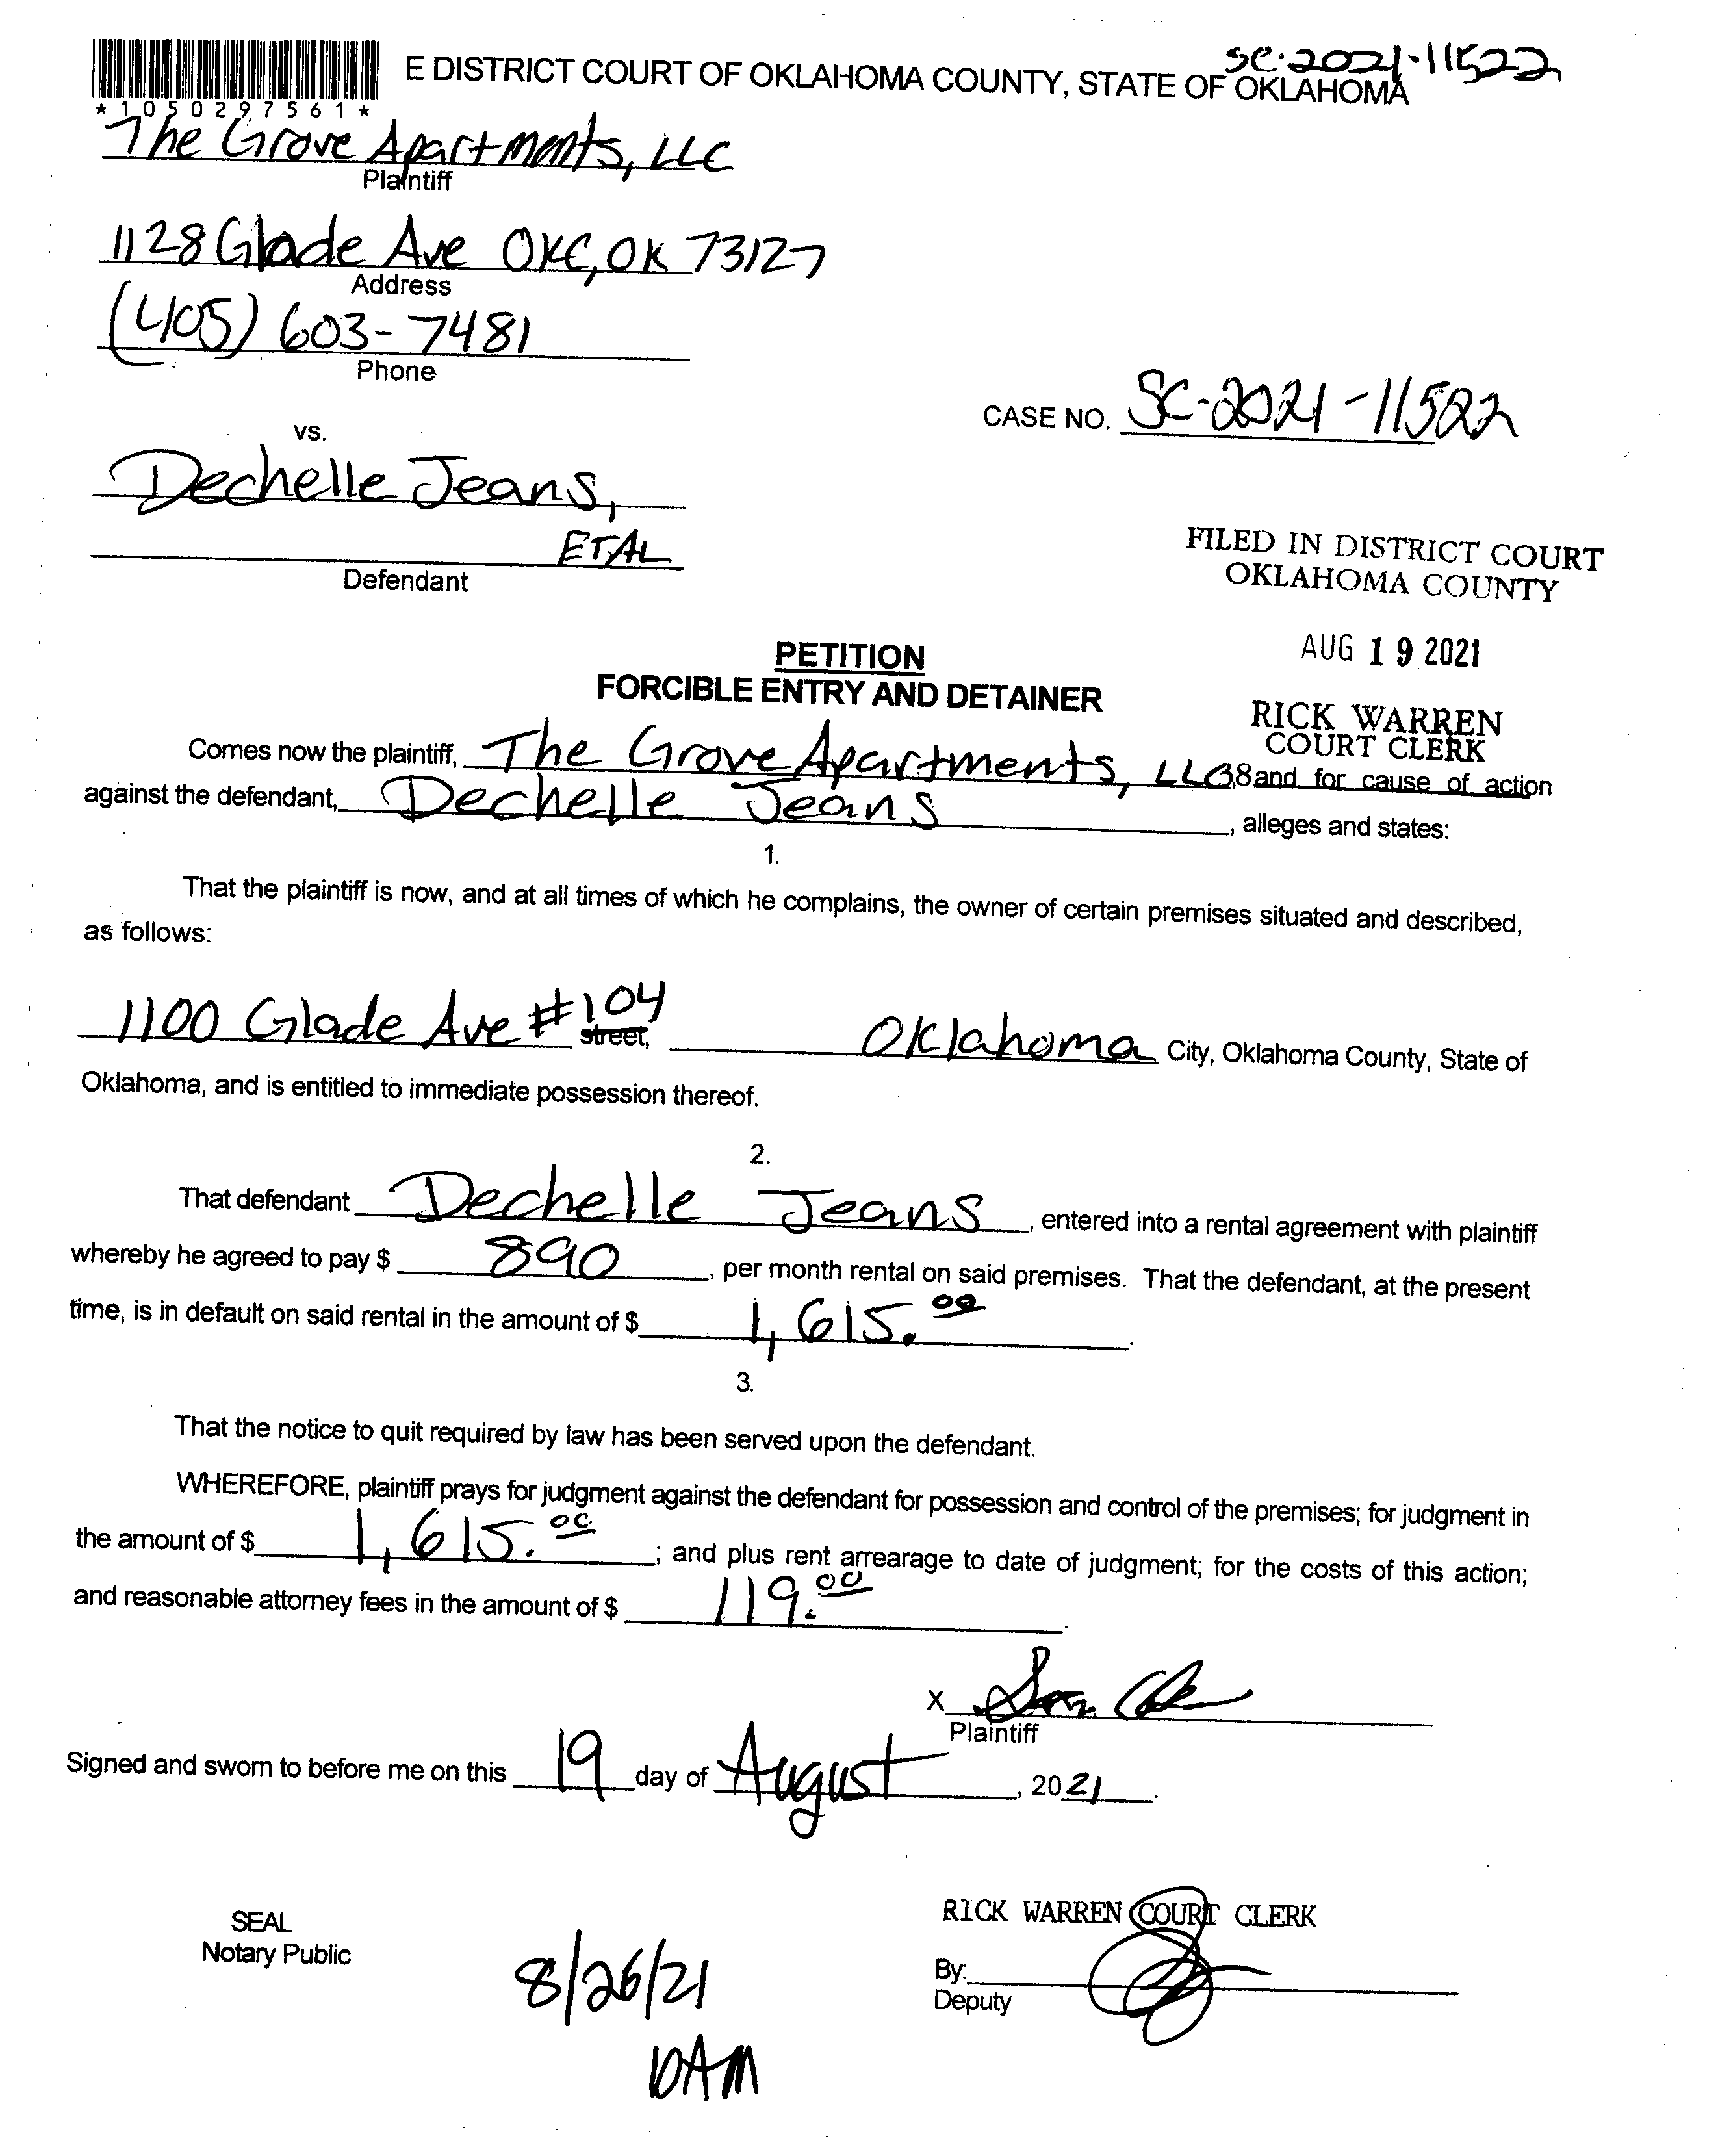 SC-2021-11522
E DISTRICT COURT OF OKLAHOMA COUNTY, STATE OF OKLAHOMA
*1050297561*
The Grove Apartments, LLC
Plaintiff
1128 Glade Ave OKC, OK 73127
Address
(405) 603-7481
Phone
CASE NO. SC-2021-11522
vs.
Dechelle Jeans,
ETAL
Defendant
FILED IN DISTRICT COURT
OKLAHOMA COUNTY
AUG 19 2021
RICK WARREN
COURT CLERK
PETITION
FORCIBLE ENTRY AND DETAINER
Comes now the plaintiff, The Grove Apartments, LLC and for cause of action
against the defendant, Dechelle Jeans, alleges and states:
1.
That the plaintiff is now, and at all times of which he complains, the owner of certain premises situated and described,
as follows:
1100 Glade Ave #104 street, Oklahoma City, Oklahoma County, State of
Oklahoma, and is entitled to immediate possession thereof.
2.
That defendant Dechelle Jeans, entered into a rental agreement with plaintiff
whereby he agreed to pay $ 890, per month rental on said premises. That the defendant, at the present
time, is in default on said rental in the amount of $ 1,615.00.
3.
That the notice to quit required by law has been served upon the defendant.
WHEREFORE, plaintiff prays for judgment against the defendant for possession and control of the premises; for judgment in
the amount of $ 1,615.00; and plus rent arrearage to date of judgment; for the costs of this action;
and reasonable attorney fees in the amount of $ 119.00.
X
Plaintiff
Signed and sworn to before me on this 19 day of August, 2021.
SEAL
Notary Public
8/26/21
10AM
RICK WARREN COURT CLERK
By:
Deputy